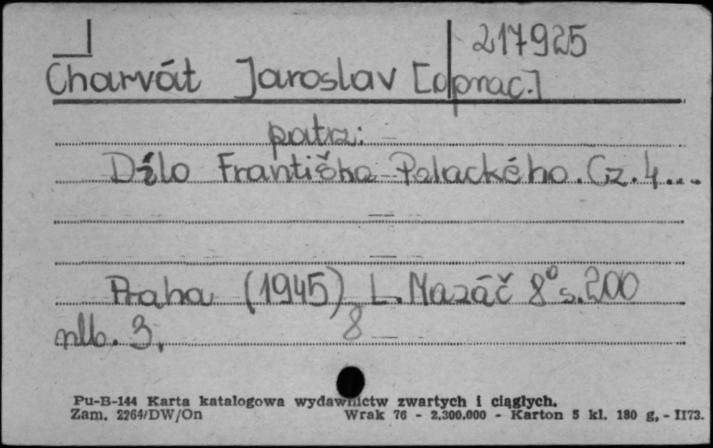 217925
Charvát Jaroslav [oprac.]
patrz:
Dílo Františka Palackého. Cz. 4...
Praha (1945) L. Mazáč 8° s. 200
nlb. 3. 8
Pu-B-144 Karta katalogowa wydawnictw zwartych i ciągłych.
Zam. 2264/DW/On Wrak 76 - 2.300.000 - Karton 5 kl. 180 g, - II73.